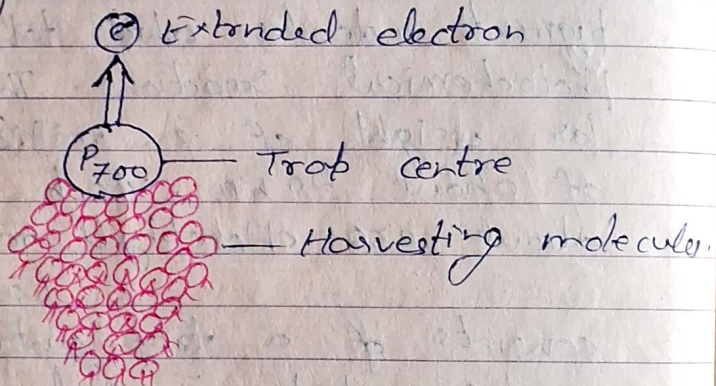 e⁻ Extended electron
P700 Trap centre
Harvesting molecules.